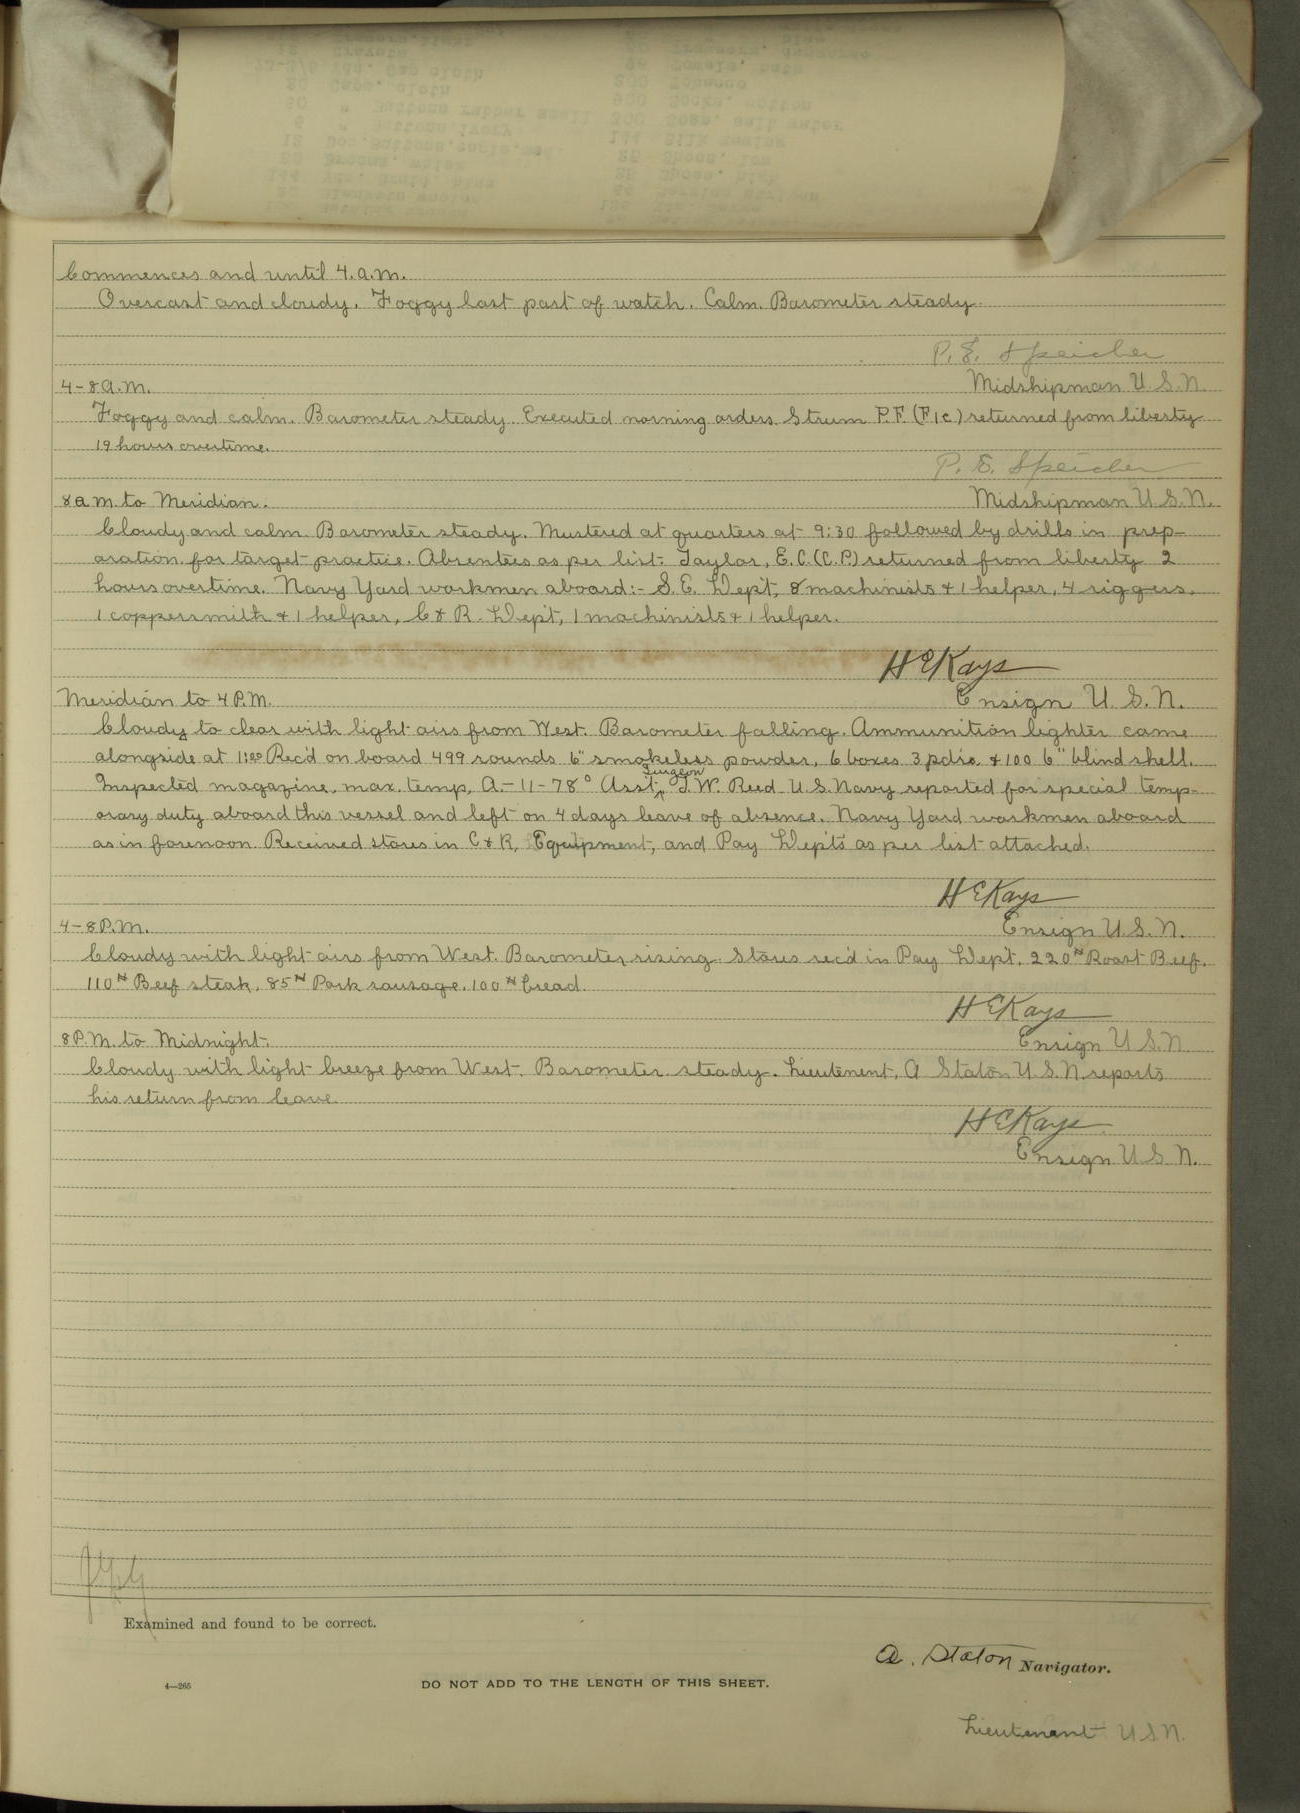 Commences and until 4. a.m.
Overcast and cloudy. Foggy last part of watch. Calm. Barometer steady.
P. E. Speicher
Midshipman U. S. N.
4-8 a.m.
Foggy and calm. Barometer steady. Executed morning orders. Strum P. F. (F1c) returned from liberty
19 hours overtime.
P. E. Speicher
Midshipman U. S. N.
8 a m. to Meridian.
Cloudy and calm. Barometer steady. Mustered at quarters at 9:30 followed by drills in prep-
aration for target practice. Absentees as per list. Taylor, E. C. (C. P.) returned from liberty 2
hours overtime. Navy Yard workmen aboard:- S. E. Dept, 8 machinists & 1 helper, 4 riggers,
1 coppersmith & 1 helper, C & R. Dept, 1 machinists & 1 helper.
H E Kays
Ensign U. S. N.
Meridian to 4 P.M.
Cloudy to clear with light airs from West. Barometer falling. Ammunition lighter came
alongside at 1:00 Rec'd on board 499 rounds 6" smokeless powder, 6 boxes 3 pdrs. & 100 6" blind shell.
Inspected magazine, max. temp, A-11-78° Ass't Surgeon T. W. Reed U. S. Navy reported for special temp-
orary duty aboard this vessel and left on 4 days leave of absence. Navy Yard workmen aboard
as in forenoon. Received stores in C & R, Equipment, and Pay Dep'ts as per list attached.
H E Kays
Ensign U. S. N.
4-8 P.M.
Cloudy with light airs from West. Barometer rising. Stores rec'd in Pay Dep't. 220# Roast Beef.
110# Beef steak, 85# Pork sausage, 100# bread.
H E Kays
Ensign U S. N.
8 P.M. to Midnight.
Cloudy with light breeze from West. Barometer steady. Lieutenent, A Staton U. S. N. reports
his return from leave.
H E Kays
Ensign U. S. N.
Examined and found to be correct.
A. Staton Navigator.
4—265
DO NOT ADD TO THE LENGTH OF THIS SHEET.
Lieutenant U S N.